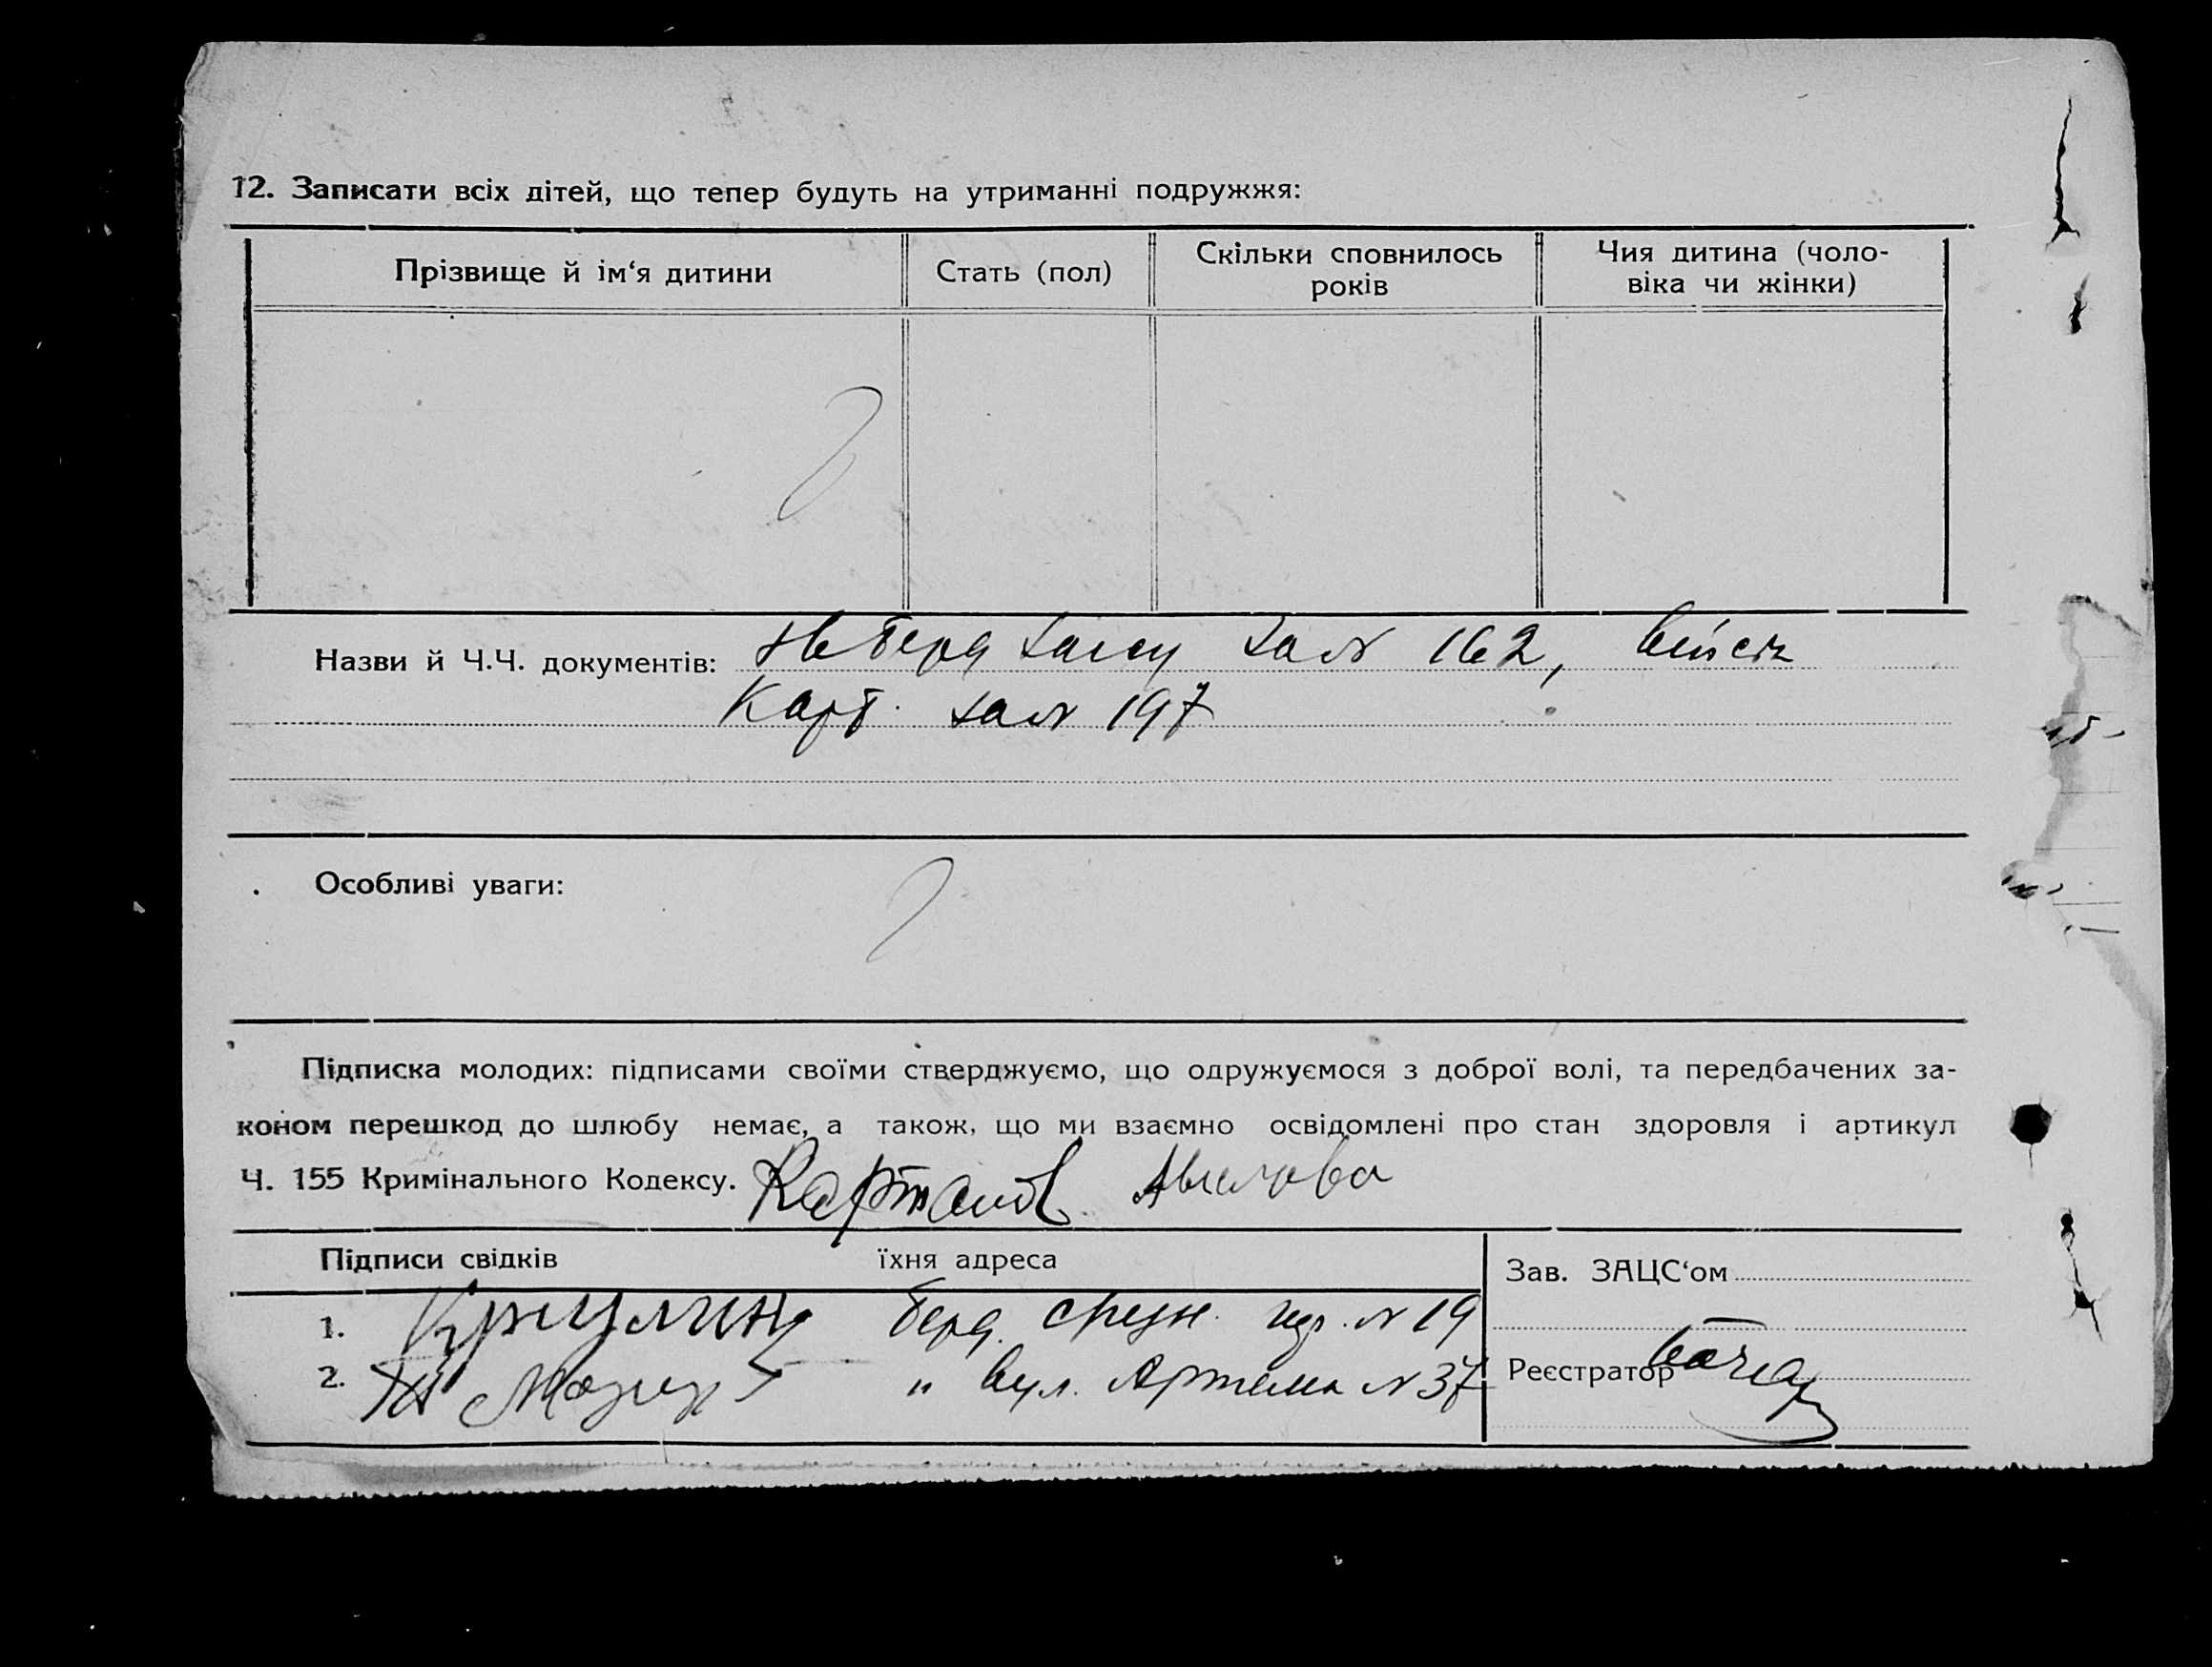 12. Записати всіх дітей, що тепер будуть на утриманні подружжя:
Прізвище й ім‘я дитини
Стать (пол)
Скільки сповнилось
років
Чия дитина (чоло-
віка чи жінки)
Назви й Ч.Ч. документів: за № 162, війск
Карт. за № 197
Особливі уваги:
Підписка молодих: підписами своїми стверджуємо, що одружуємося з доброї волі, та передбачених за-
коном перешкод до шлюбу немає, а також, що ми взаємно освідомлені про стан здоровля і артикул
Ч. 155 Кримінального Кодексу.
Підписи свідків їхня адреса
Зав. ЗАЦС‘ом
1. Берд. № 19
2. " вул. Артема № 37
Реєстратор